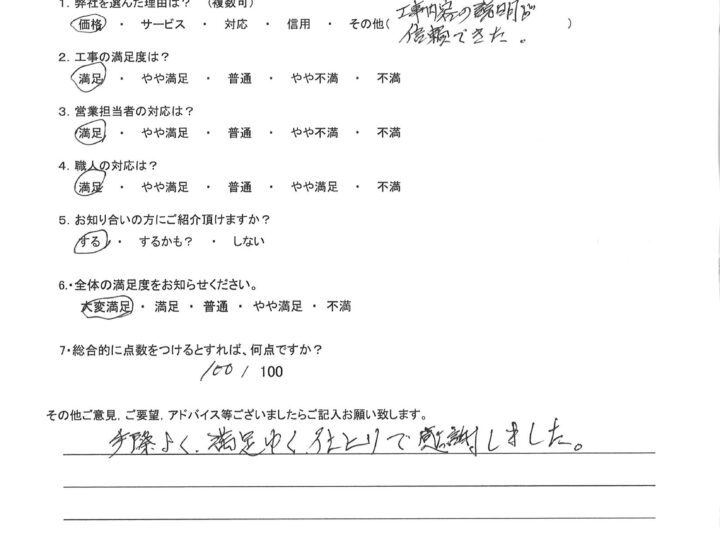 1. 弊社を選んだ理由は？　(複数可)
価格　・　サービス　・　対応　・　信用　・　その他(工事内容の説明が
信頼できた。)
2. 工事の満足度は？
満足　・　やや満足　・　普通　・　やや不満　・　不満
3. 営業担当者の対応は？
満足　・　やや満足　・　普通　・　やや不満　・　不満
4. 職人の対応は？
満足　・　やや満足　・　普通　・　やや満足　・　不満
5. お知り合いの方にご紹介頂けますか？
する　・　するかも？　・　しない
6.・全体の満足度をお知らせください。
大変満足　・　満足　・　普通　・　やや満足　・　不満
7・総合的に点数をつけるとすれば、何点ですか？
100 / 100
その他ご意見，ご要望，アドバイス等ございましたらご記入お願い致します。
手際よく、満足ゆく仕上りで感謝しました。